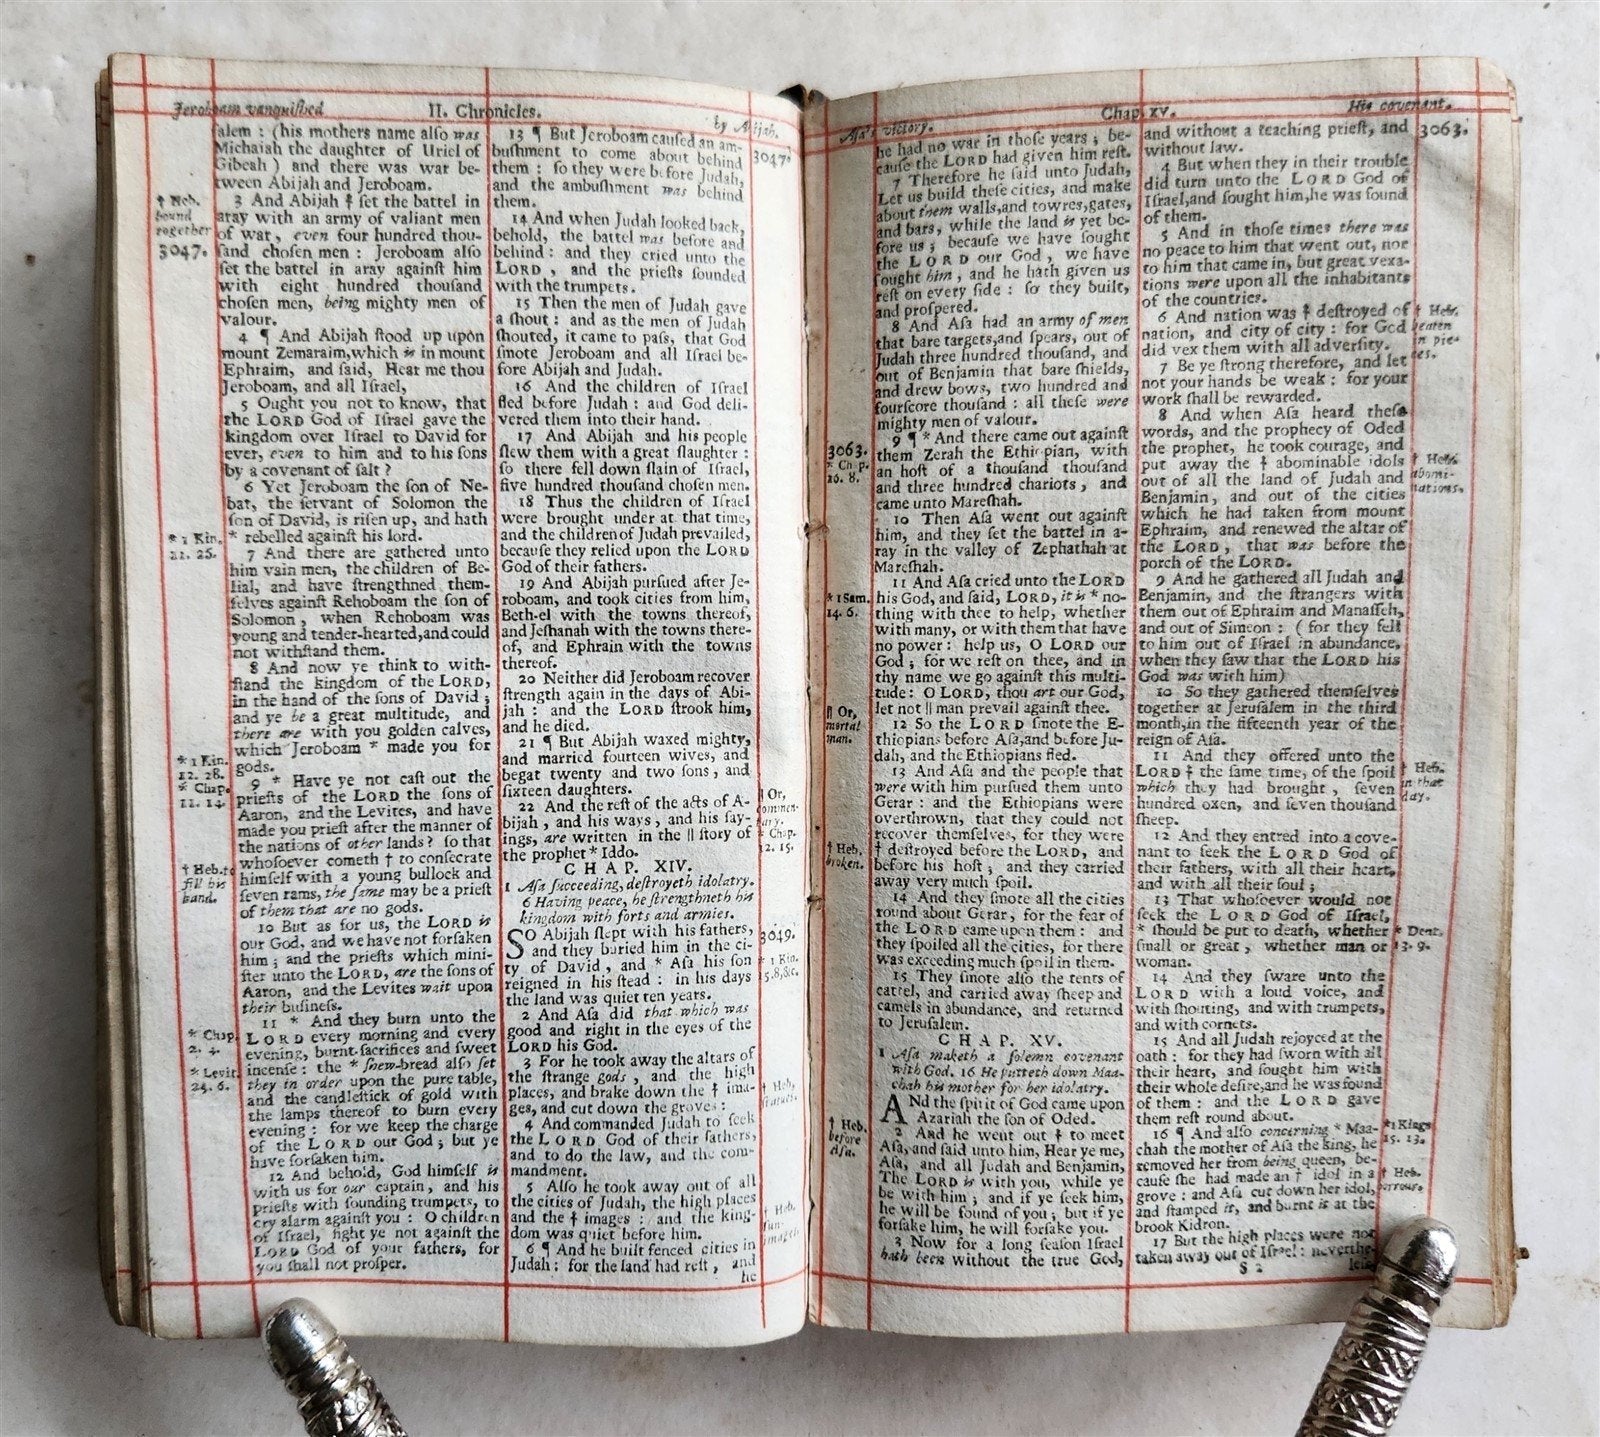 Jeroboam vanquiſhed
II. Chronicles.
by Abijah.
ſalem : (his mothers name alſo was
Michaiah the daughter of Uriel of
Gibeah ) and there was war be-
tween Abijah and Jeroboam.
3 And Abijah † ſet the battel in
aray with an army of valiant men
of war, even four hundred thou-
ſand choſen men : Jeroboam alſo
ſet the battel in aray againſt him
with eight hundred thouſand
choſen men, being mighty men of
valour.
4 ¶ And Abijah ſtood up upon
mount Zemaraim,which is in mount
Ephraim, and ſaid, Hear me thou
Jeroboam, and all Iſrael,
5 Ought you not to know, that
the LORD God of Iſrael gave the
kingdom over Iſrael to David for
ever, even to him and to his ſons
by a covenant of ſalt ?
6 Yet Jeroboam the ſon of Ne-
bat, the ſervant of Solomon the
ſon of David, is riſen up, and hath
* rebelled againſt his lord.
7 And there are gathered unto
him vain men, the children of Be-
lial, and have ſtrengthned them-
ſelves againſt Rehoboam the ſon of
Solomon , when Rehoboam was
young and tender-hearted,and could
not withſtand them.
8 And now ye think to with-
ſtand the kingdom of the LORD,
in the hand of the ſons of David ;
and ye be a great multitude, and
there are with you golden calves,
which Jeroboam * made you for
gods.
9 * Have ye not caſt out the
prieſts of the LORD the ſons of
Aaron, and the Levites, and have
made you prieſt after the manner of
the nations of other lands? ſo that
whoſoever cometh † to conſecrate
himſelf with a young bullock and
ſeven rams, the ſame may be a prieſt
of them that are no gods.
10 But as for us, the LORD is
our God, and we have not forſaken
him ; and the prieſts which mini-
ſter unto the LORD, are the ſons of
Aaron, and the Levites wait upon
their buſineſs.
11 * And they burn unto the
LORD every morning and every
evening, burnt-ſacrifices and ſweet
incenſe : the * ſhew-bread alſo ſet
they in order upon the pure table,
and the candleſtick of gold with
the lamps thereof to burn every
evening : for we keep the charge
of the LORD our God ; but ye
have forſaken him.
12 And behold, God himſelf is
with us for our captain, and his
prieſts with ſounding trumpets, to
cry alarm againſt you : O children
of Iſrael, fight ye not againſt the
LORD God of your fathers, for
you ſhall not proſper.
† Heb.
bound
together
3047.
* 1 Kin.
11. 26.
* 1 Kin.
12. 28.
* Chap.
11. 14.
† Heb.to
fill his
hand.
* Chap.
2. 4.
* Levit.
24. 6.
13 ¶ But Jeroboam cauſed an am-
buſhment to come about behind
them : ſo they were before Judah,
and the ambuſhment was behind
them.
14 And when Judah looked back,
behold, the battel was before and
behind : and they cried unto the
LORD , and the prieſts ſounded
with the trumpets.
15 Then the men of Judah gave
a ſhout : and as the men of Judah
ſhouted, it came to paſs, that God
ſmote Jeroboam and all Iſrael be-
fore Abijah and Judah.
16 And the children of Iſrael
fled before Judah : and God deli-
vered them into their hand.
17 And Abijah and his people
ſlew them with a great ſlaughter :
ſo there fell down ſlain of Iſrael,
five hundred thouſand choſen men.
18 Thus the children of Iſrael
were brought under at that time,
and the children of Judah prevailed,
becauſe they relied upon the LORD
God of their fathers.
19 And Abijah purſued after Je-
roboam, and took cities from him,
Beth-el with the towns thereof,
and Jeſhanah with the towns there-
of, and Ephrain with the towns
thereof.
20 Neither did Jeroboam recover
ſtrength again in the days of Abi-
jah : and the LORD ſtrook him,
and he died.
21 ¶ But Abijah waxed mighty,
and married fourteen wives, and
begat twenty and two ſons , and
ſixteen daughters.
22 And the reſt of the acts of A-
bijah , and his ways , and his ſay-
ings, are written in the || ſtory of
the prophet * Iddo.
CHAP. XIV.
1 Aſa ſucceeding, deſtroyeth idolatry.
6 Having peace, he ſtrengthneth his
kingdom with forts and armies.
SO Abijah ſlept with his fathers,
and they buried him in the ci-
ty of David , and * Aſa his ſon
reigned in his ſtead : in his days
the land was quiet ten years.
2 And Aſa did that which was
good and right in the eyes of the
LORD his God.
3 For he took away the altars of
the ſtrange gods , and the high
places, and brake down the † ima-
ges, and cut down the groves :
4 And commanded Judah to ſeek
the LORD God of their fathers,
and to do the law, and the com-
mandment.
5 Alſo he took away out of all
the cities of Judah, the high places
and the † images : and the king-
dom was quiet before him.
6 ¶ And he built fenced cities in
Judah : for the land had reſt , and
he
3047.
|| Or,
commen-
tary.
* Chap.
12. 15.
3049.
* 1 Kin.
15.8,&c.
† Heb.
ſtatues.
† Heb.
ſun
images.
Aſa's victory.
Chap. xv.
His covenant.
he had no war in thoſe years ; be-
cauſe the LORD had given him reſt.
7 Therefore he ſaid unto Judah,
Let us build theſe cities, and make
about them walls,and towres,gates,
and bars, while the land is yet be-
fore us ; becauſe we have ſought
the LORD our God , we have
ſought him , and he hath given us
reſt on every ſide : ſo they built,
and proſpered.
8 And Aſa had an army of men
that bare targets,and ſpears, out of
Judah three hundred thouſand, and
out of Benjamin that bare ſhields,
and drew bows, two hundred and
fourſcore thouſand : all theſe were
mighty men of valour.
9 ¶ * And there came out againſt
them Zerah the Ethiopian, with
an hoſt of a thouſand thouſand
and three hundred chariots , and
came unto Mareſhah.
10 Then Aſa went out againſt
him, and they ſet the battel in a-
ray in the valley of Zephathah at
Mareſhah.
11 And Aſa cried unto the LORD
his God, and ſaid, LORD, it is * no-
thing with thee to help, whether
with many, or with them that have
no power : help us, O LORD our
God ; for we reſt on thee, and in
thy name we go againſt this multi-
tude : O LORD, thou art our God,
let not || man prevail againſt thee.
12 So the LORD ſmote the E-
thiopians before Aſa,and before Ju-
dah, and the Ethiopians fled.
13 And Aſa and the people that
were with him purſued them unto
Gerar : and the Ethiopians were
overthrown, that they could not
recover themſelves, for they were
† deſtroyed before the LORD, and
before his hoſt ; and they carried
away very much ſpoil.
14 And they ſmote all the cities
round about Gerar, for the fear of
the LORD came upon them : and
they ſpoiled all the cities, for there
was exceeding much ſpoil in them.
15 They ſmote alſo the tents of
cattel, and carried away ſheep and
camels in abundance, and returned
to Jeruſalem.
CHAP. XV.
1 Aſa maketh a ſolemn covenant
with God. 16 He putteth down Maa-
chah his mother for her idolatry.
ANd the ſpirit of God came upon
Azariah the ſon of Oded.
2 And he went out † to meet
Aſa, and ſaid unto him, Hear ye me,
Aſa, and all Judah and Benjamin,
The LORD is with you, while ye
be with him ; and if ye ſeek him,
he will be found of you ; but if ye
forſake him, he will forſake you.
3 Now for a long ſeaſon Iſrael
hath been without the true God,
3063.
* Chap.
16. 8.
* 1 Sam.
14. 6.
|| Or,
mortal
man.
† Heb.
broken.
† Heb.
before
Aſa.
and without a teaching prieſt, and
without law.
4 But when they in their trouble
did turn unto the LORD God of
Iſrael,and ſought him,he was found
of them.
5 And in thoſe times there was
no peace to him that went out, nor
to him that came in, but great vexa-
tions were upon all the inhabitants
of the countries.
6 And nation was † deſtroyed of
nation, and city of city : for God
did vex them with all adverſity.
7 Be ye ſtrong therefore, and let
not your hands be weak : for your
work ſhall be rewarded.
8 And when Aſa heard theſe
words, and the prophecy of Oded
the prophet, he took courage, and
put away the † abominable idols
out of all the land of Judah and
Benjamin, and out of the cities
which he had taken from mount
Ephraim, and renewed the altar of
the LORD , that was before the
porch of the LORD.
9 And he gathered all Judah and
Benjamin, and the ſtrangers with
them out of Ephraim and Manaſſeh,
and out of Simeon : ( for they fell
to him out of Iſrael in abundance,
when they ſaw that the LORD his
God was with him)
10 So they gathered themſelves
together at Jeruſalem in the third
month,in the fifteenth year of the
reign of Aſa.
11 And they offered unto the
LORD † the ſame time, of the ſpoil
which they had brought , ſeven
hundred oxen, and ſeven thouſand
ſheep.
12 And they entred into a cove-
nant to ſeek the LORD God of
their fathers, with all their heart,
and with all their ſoul ;
13 That whoſoever would not
ſeek the LORD God of Iſrael,
* ſhould be put to death, whether
ſmall or great , whether man or
woman.
14 And they ſware unto the
LORD with a loud voice, and
with ſhouting, and with trumpets,
and with cornets.
15 And all Judah rejoyced at the
oath : for they had ſworn with all
their heart, and ſought him with
their whole deſire,and he was found
of them : and the LORD gave
them reſt round about.
16 ¶ And alſo concerning * Maa-
chah the mother of Aſa the king, he
removed her from being queen, be-
cauſe ſhe had made an † idol in a
grove : and Aſa cut down her idol,
and ſtamped it, and burnt it at the
brook Kidron.
17 But the high places were not
taken away out of Iſrael : neverthe-
S 2
leſs
3063.
† Heb.
beaten
in pie-
ces.
† Heb.
abomi-
nations.
† Heb.
in that
day.
* Deut.
13. 9.
* 1 Kings
15. 13.
† Heb.
horrour.